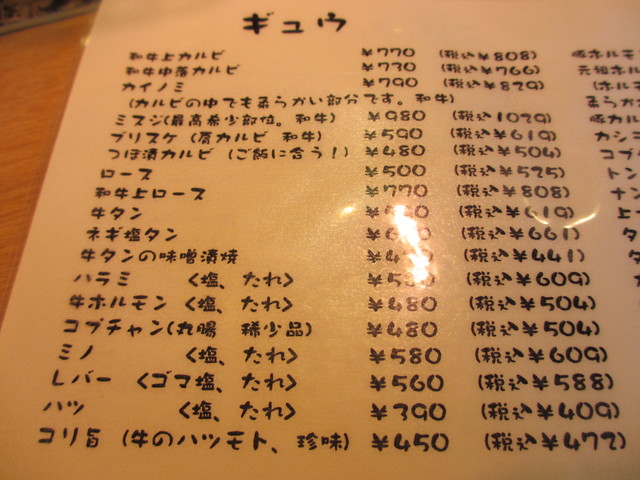 ギュウ
和牛上カルビ ¥770 (税込¥808)
和牛中落カルビ ¥730 (税込¥766)
カイノミ ¥790 (税込¥829)
(カルビの中でも柔らかい部分です。和牛)
ミスジ(最高希少部位。和牛) ¥980 (税込 1029)
ブリスケ (肩カルビ 和牛) ¥590 (税込¥619)
つぼ漬カルビ (ご飯に合う!) ¥480 (税込¥504)
ロース ¥500 (税込¥525)
和牛上ロース ¥770 (税込¥808)
牛タン (税込¥619)
ネギ塩タン (税込¥661)
牛タンの味噌漬焼 (税込¥441)
ハラミ <塩、たれ> (税込¥609)
牛ホルモン <塩、たれ> ¥480 (税込¥504)
コプチャン(丸腸 稀少品) ¥480 (税込¥504)
ミノ <塩、たれ> ¥580 (税込¥609)
レバー <ゴマ塩、たれ> ¥560 (税込¥588)
ハツ <塩、たれ> ¥390 (税込¥409)
コリ旨 (牛のハツモト、珍味) ¥450 (税込¥472)
豚ホルモ
元祖ホル
(ホルモ
柔らか
豚カル
カシ
コブ
トン
ナン
上
タ